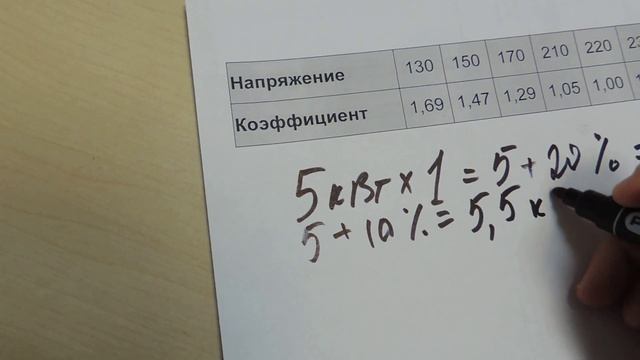 Напряжение 130 150 170 210 220
Коэффициент 1,69 1,47 1,29 1,05 1,00
5 кВт х 1 = 5 + 20% =
5 + 10% = 5,5 к